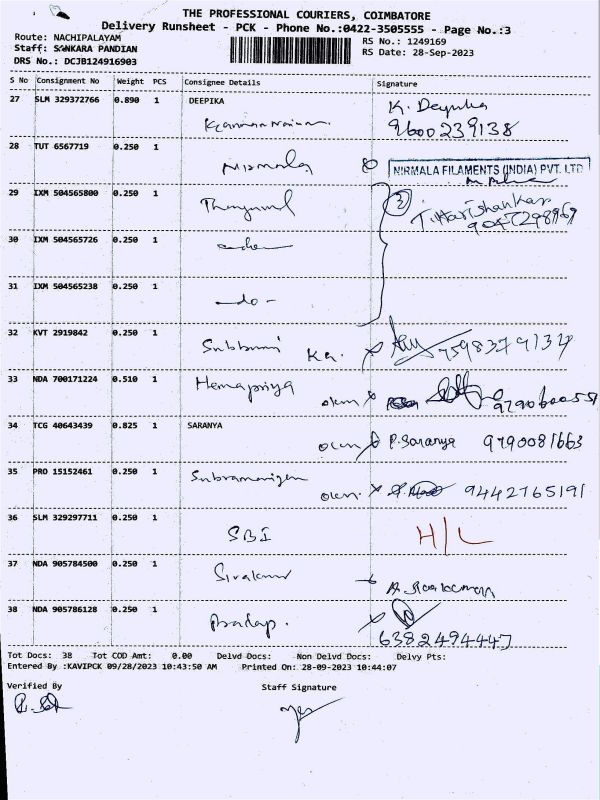 THE PROFESSIONAL COURIERS, COIMBATORE
Delivery Runsheet - PCK - Phone No.:0422-3505555 - Page No.:3
Route: NACHIPALAYAM
RS No.: 1249169
Staff: SANKARA PANDIAN
RS Date: 28-Sep-2023
DRS No.: DCJB124916903
S No Consignment No Weight PCS Consignee Details Signature
27 SLM 329372766 0.890 1 DEEPIKA K. Deepika
9600239138
28 TUT 6567719 0.250 1 Nirmala NIRMALA FILAMENTS (INDIA) PVT. LTD
29 IXM 504565800 0.250 1 T. Harishankar
9047298969
30 IXM 504565726 0.250 1
31 IXM 504565238 0.250 1 -do-
32 KVT 2919842 0.250 1 7598379134
33 NDA 700171224 0.510 1 Hemapriya
34 TCG 40643439 0.825 1 SARANYA
P. Saranya 9790081663
35 PRO 15152461 0.250 1 9442765191
36 SLM 329297711 0.250 1 SBI H/L
37 NDA 905784500 0.250 1 Sivakumar
38 NDA 905786128 0.250 1 Pradap.
6382494447
Tot Docs: 38 Tot COD Amt: 0.00 Delvd Docs: Non Delvd Docs: Delvy Pts:
Entered By :KAVIPCK 09/28/2023 10:43:50 AM Printed On: 28-09-2023 10:44:07
Verified By Staff Signature